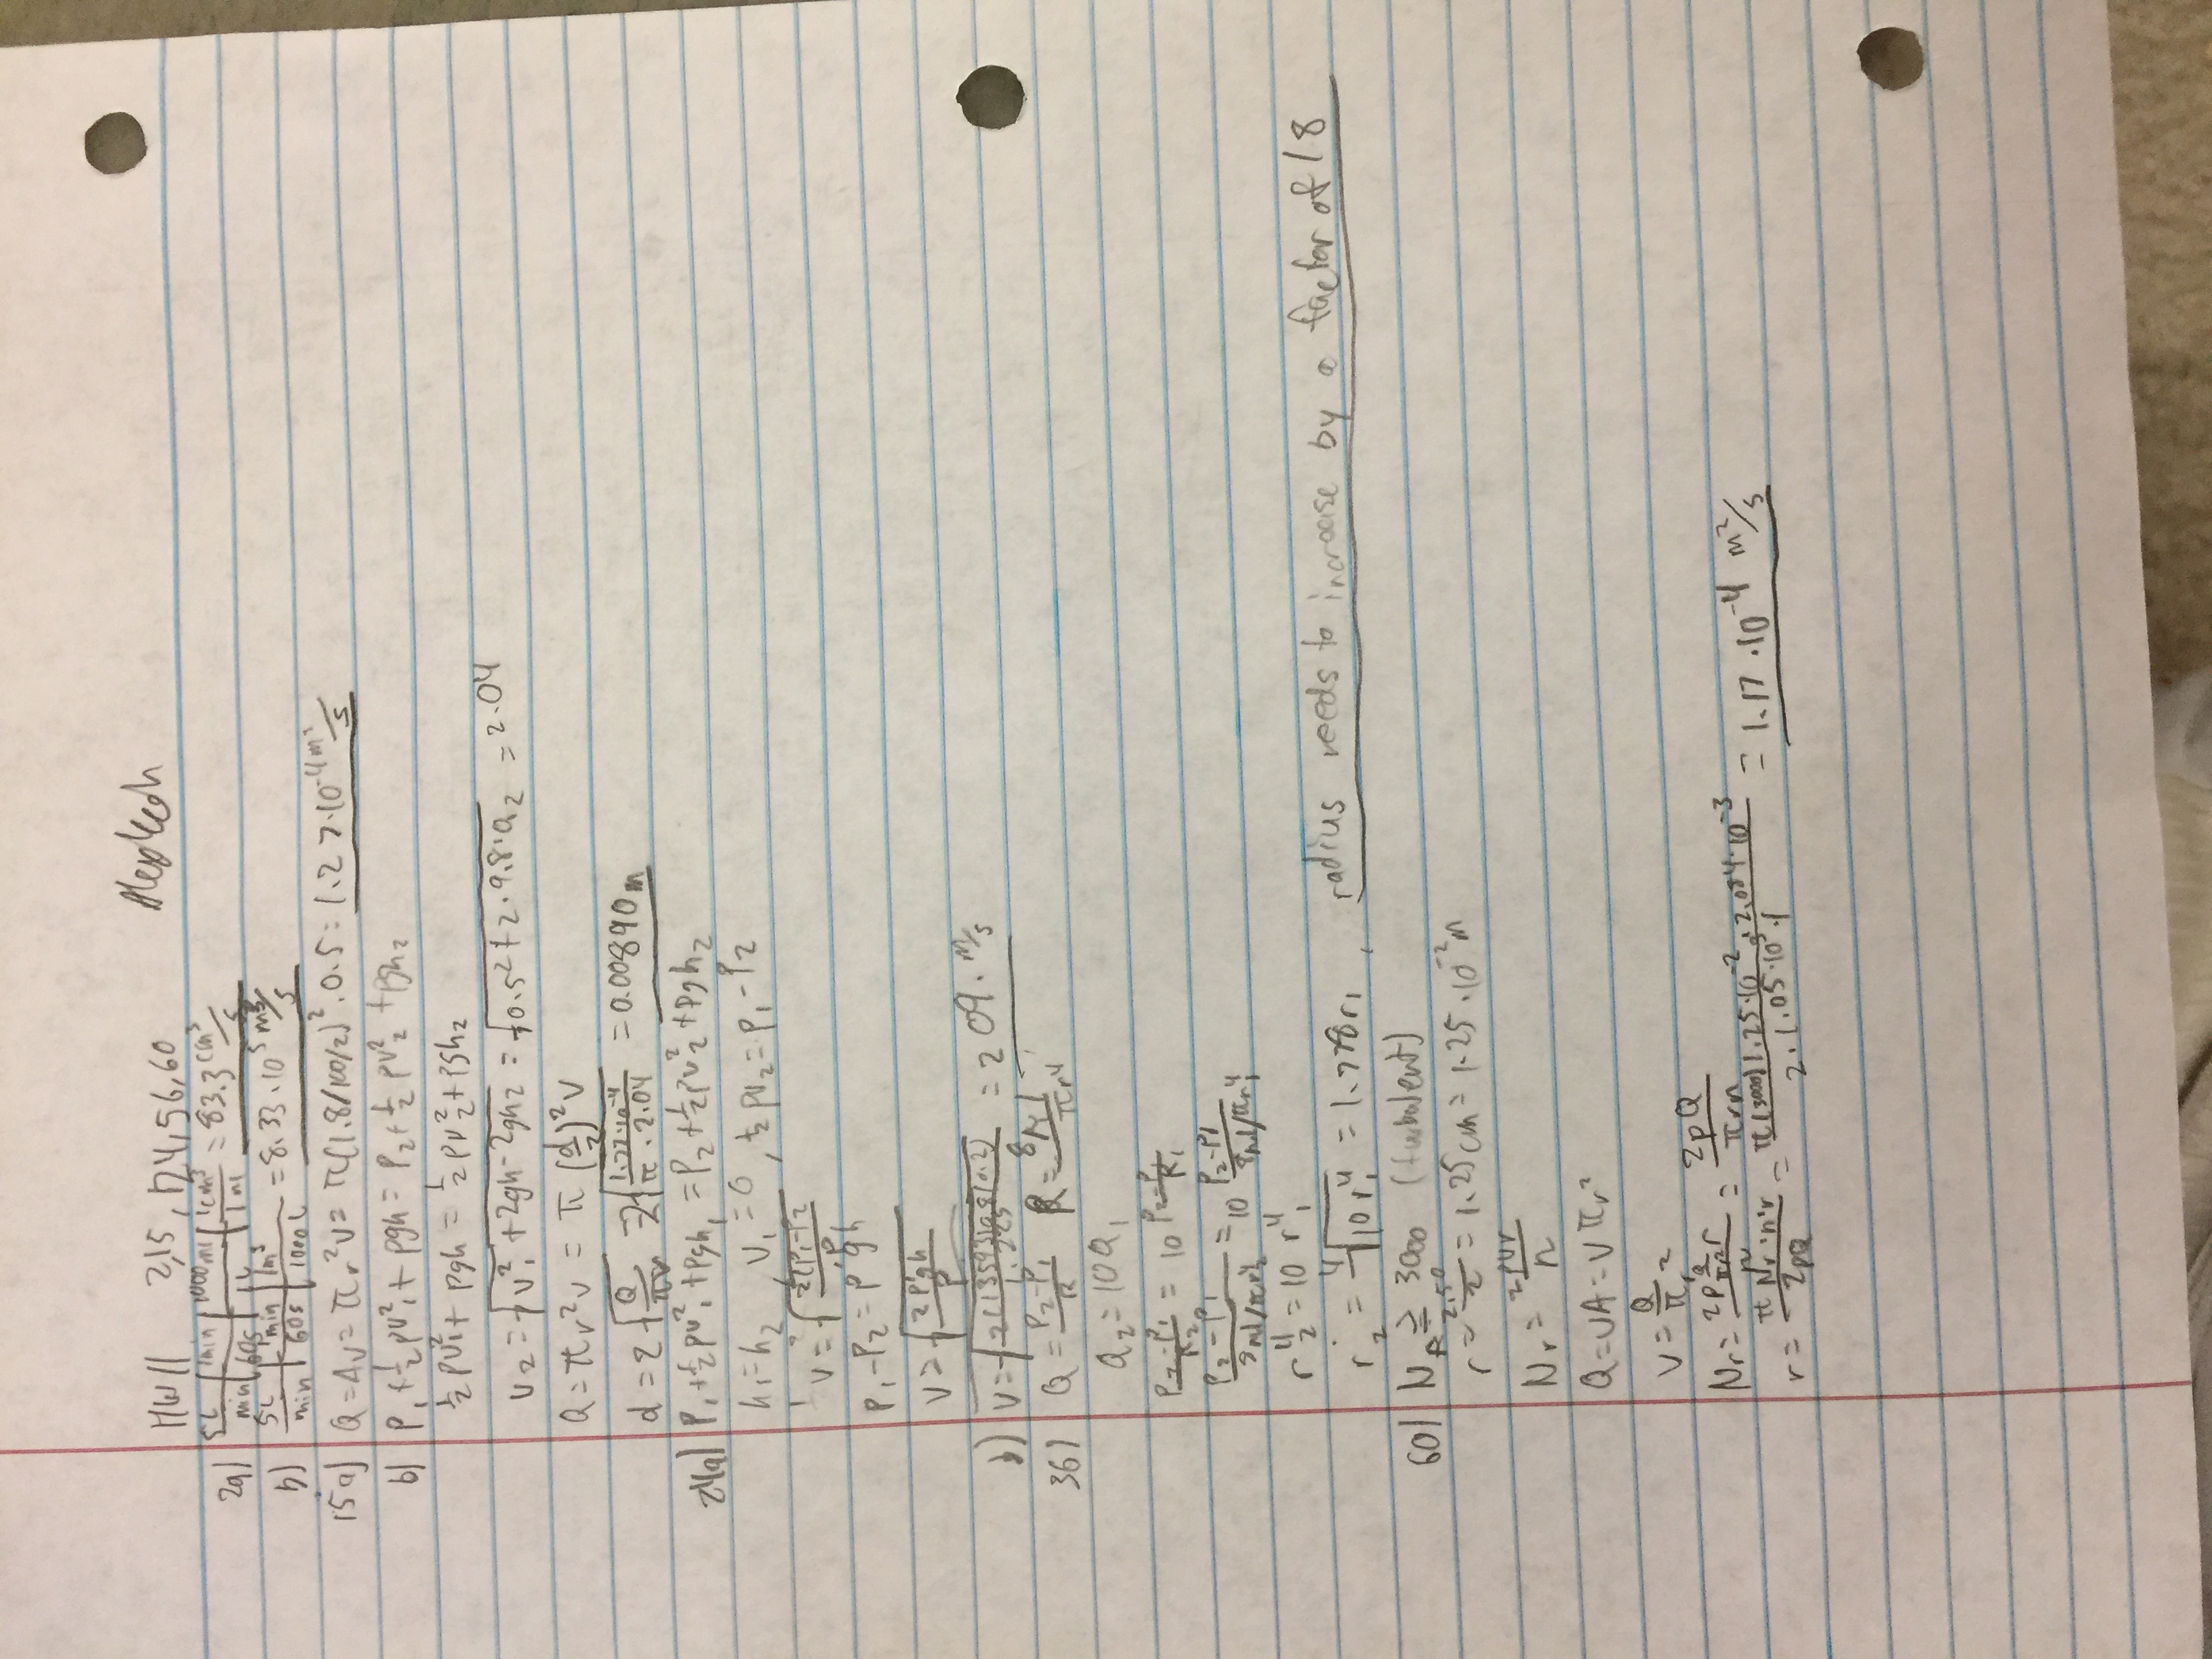 HW 11 2,15, 124,56,60
2a) 5L/min | 1min/60s | 1000ml/1L | 1cm³/1ml = 83.3 cm³/s
b) 5L/min | 1min/60s | 1m³/1000L = 8.33·10⁵ m³/s
15a) Q=Av=πr²v=π(1.8/100/2)²·0.5=1.27·10⁻⁴ m³/s
b) P₁+½ρv₁²+ρgh=P₂+½ρv₂²+ρgh₂
½ρv₁²+ρgh=½ρv₂²+ρgh₂
v₂=√(v₁²+2gh-2gh₂)=√(0.5²+2·9.8·0.2)=2.04
Q=πr²v=π(d/2)²v
d=2√(Q/πv)=2√(1.27·10⁻⁴/π·2.04)=0.00890m
24a) P₁+½ρv₁²+ρgh₁=P₂+½ρv₂²+ρgh₂
h₁=h₂, v₁=0, ½ρv₂=P₁-P₂
v=√(2(P₁-P₂/ρ
P₁-P₂=ρ'gh
v=√(2ρ'gh/ρ)
b) v=√(2(13593)9.8(0.2)/1.225)=209. m/s
36) Q=P₂-P₁/R R=8nl/πr⁴
Q₂=10Q₁
P₂-P₁/R₂=10 P₂-P₁/R₁
P₂-P₁/8nl/πr₂⁴=10 P₂-P1/8nl/πr₁⁴
r₂⁴=10 r₁⁴
r₂=⁴√(10r₁⁴)=1.778r₁, radius needs to increase by a factor of 1.8
60) N_R≥3000 (turbulent)
r=2.50/2=1.25cm=1.25·10⁻²m
Nr=2ρvr/n
Q=vA=vπr²
v=Q/πr²
Nr=2ρ(Q/πr²)r/n=2ρQ/πrn
r=πNr·n·r/2ρQ=π(3000)1.25·10⁻²·2.084·10⁻³/2·1.05·10³·1=1.17·10⁻⁴ m²/s